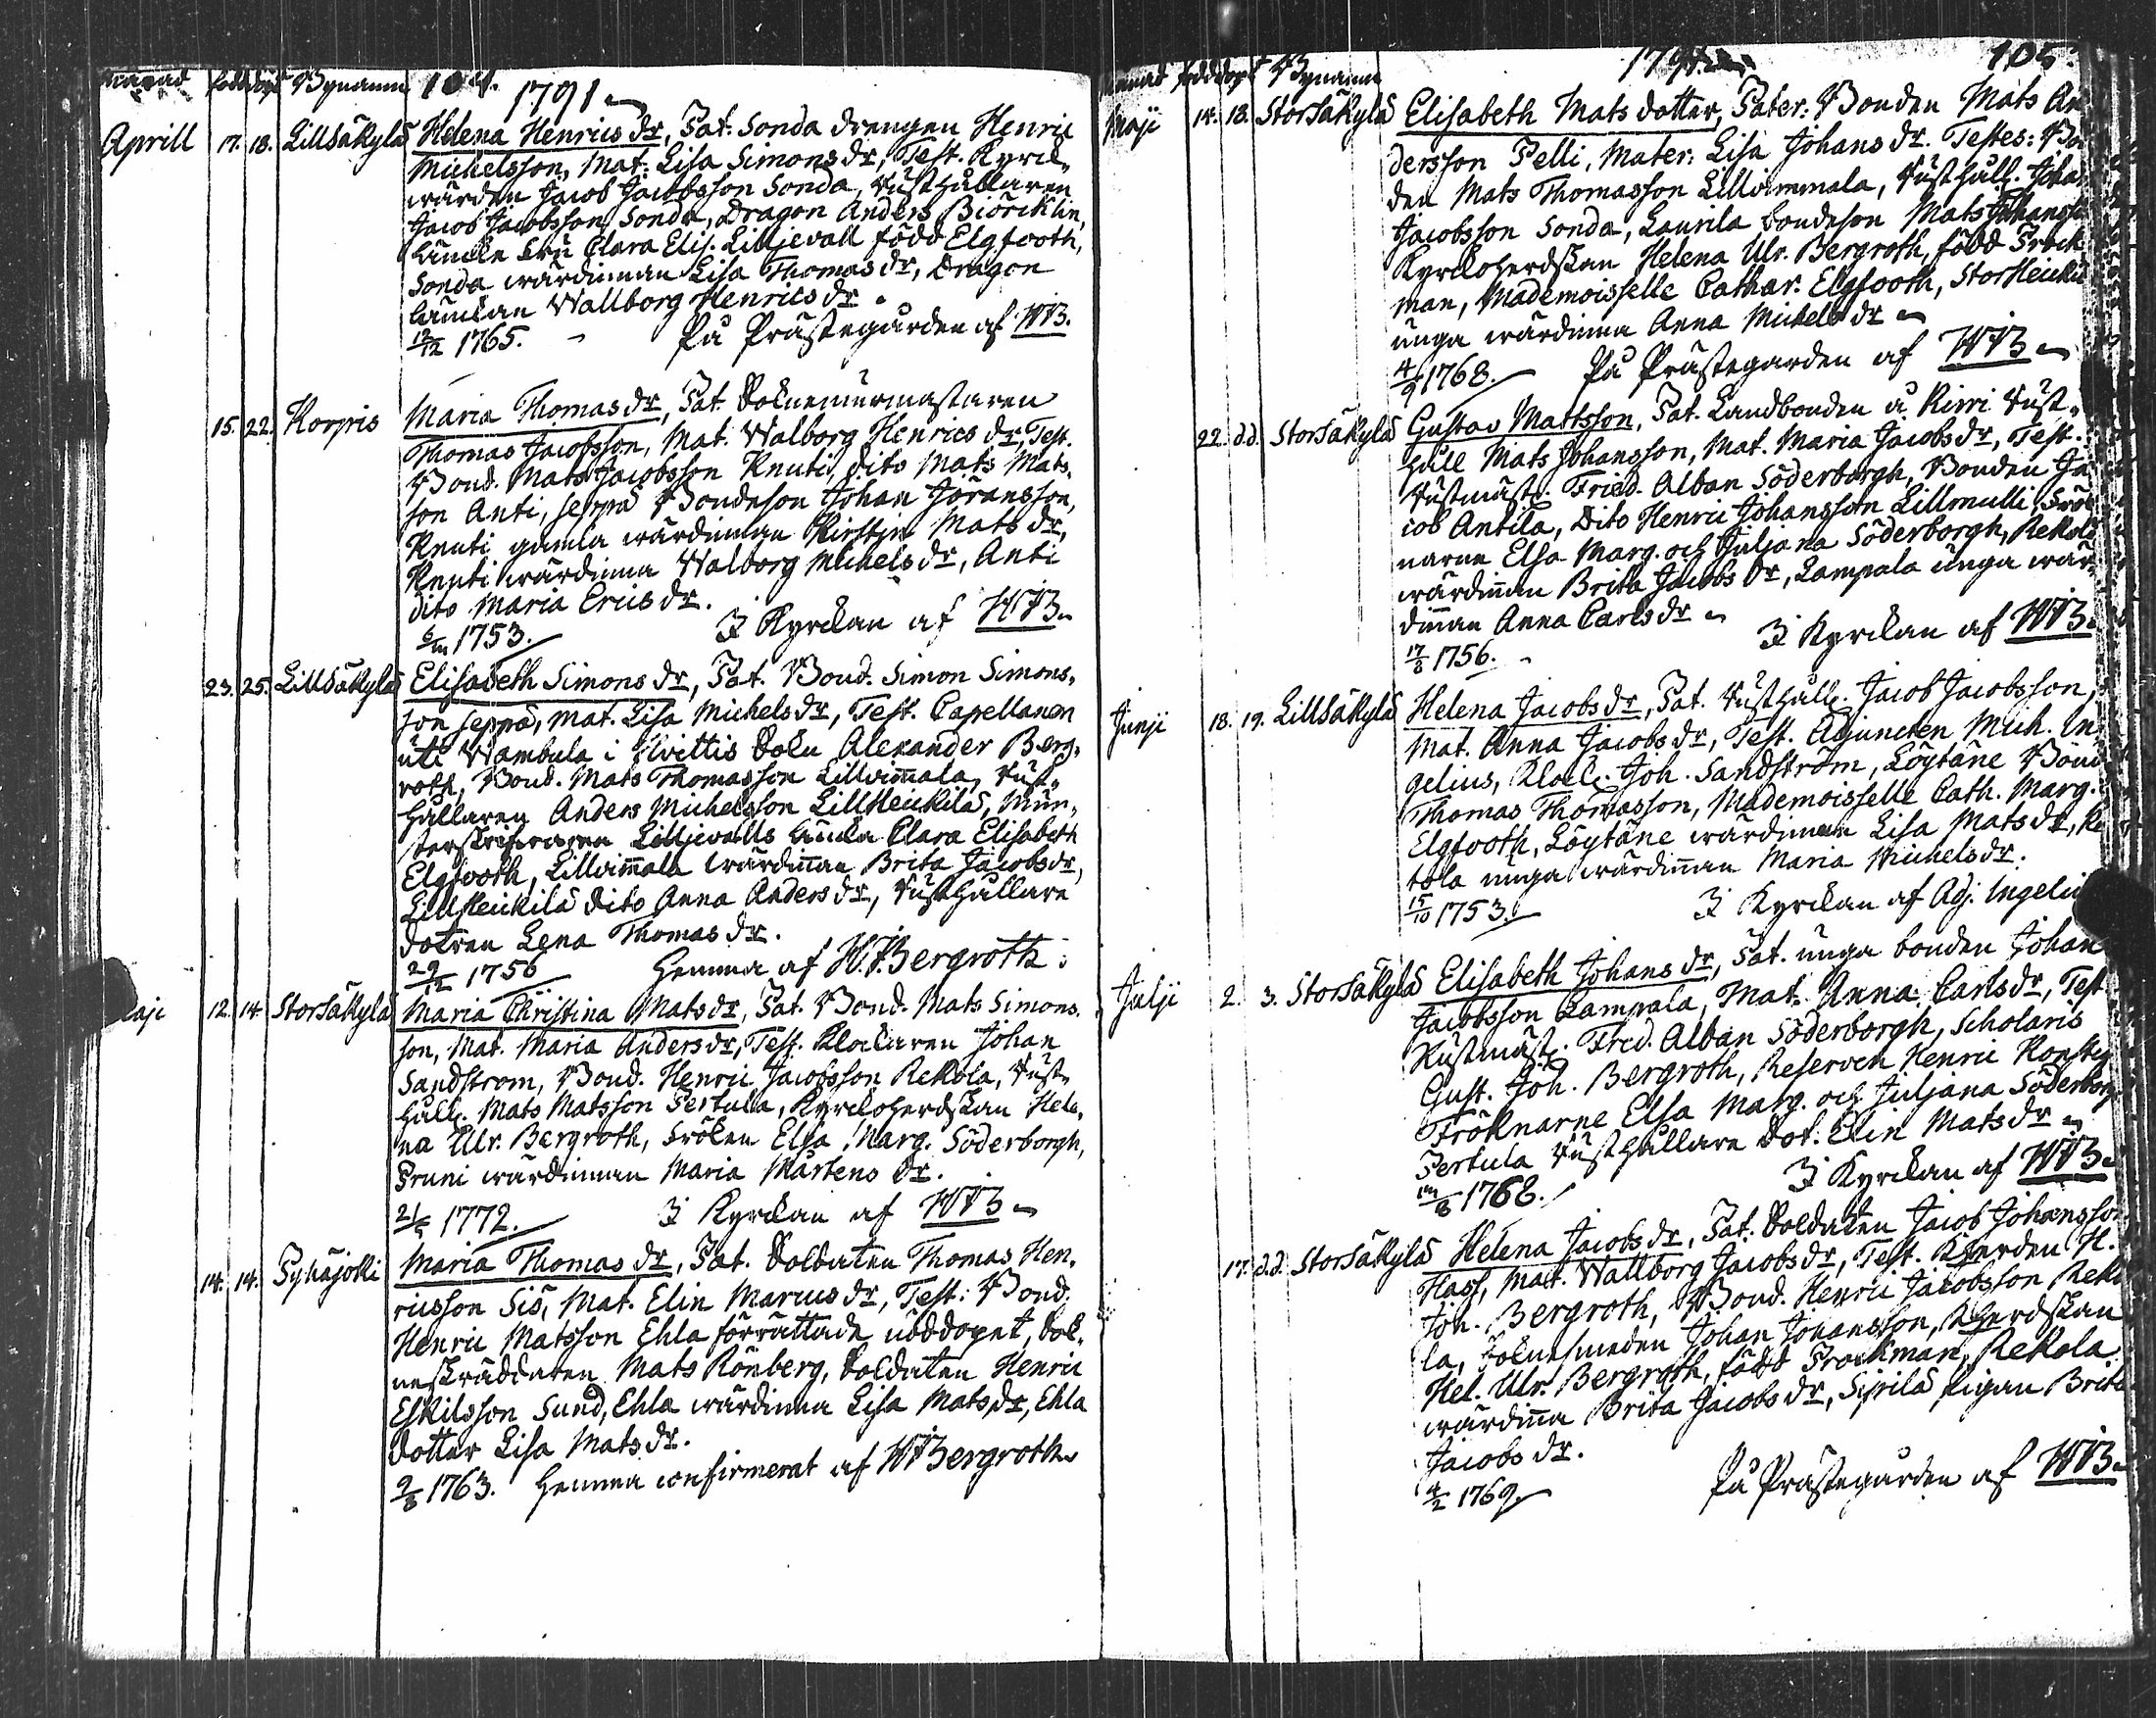 Månad född döpt Bynamn 104. 1791
Aprill 17. 18. Lillsäkylä Helena Henrics dr, Pat. Sonda drengen Henric
Michelsson, Mat: Lisa Simons dr, Test. Kyrck-
wärden Jacob Jacobsson Sonda, Rusthållaren
Jacob Jacobsson Sonda, Dragon Anders Biörcklin,
Enkefru Clara Elis. Lilljevall född Elgfooth,
Sonda wärdinnan Lisa Thomas dr, Dragon
Enckan Wallborg Henrics dr.
12/12 1765. På Prästegården af HJB.
15. 22. Korpis Maria Thomas dr, Pat. Soknemurmästaren
Thomas Jacobsson, Mat. Walborg Henrics dr, Test.
Bond. Mats Jacobsson Knuti, dito Mats Mats-
son Anti, Seppä Bondeson Johan Jöransson,
Knuti gamla wärdinnan Kirstin Mats dr,
Knuti wärdinna Walborg Michels dr, Anti
dito Maria Erics dr.
6/m 1753. I Kyrckan af HJB.
23. 25. Lillsäkylä Elisabeth Simons dr, Pat. Bond. Simon Simons-
son Seppä, Mat. Lisa Michels dr, Test. Capellanen
uti Wambula i Hvittis Sokn Alexander Berg-
roth, Bond. Mats Thomasson Lillvimala, Rust-
hållaren Anders Michelsson Lillheickilä, Mön-
sterskrifvaren Lilljevalls Encka Clara Elisabeth
Elgfooth, Lillvimala wärdinan Brita Jacobs dr,
Lillheickilä dito Anna Anders dr, Rusthållare
dotren Lena Thomas dr.
29/12 1756 Hemma af H.J.Bergroth.
Maji 12. 14. Storsäkylä Maria Christina Mats dr, Pat. Bond. Mats Simons-
son, Mat. Maria Anders dr, Test. Klockaren Johan
Sandstrom, Bond. Henric Jacobsson Rekola, Rust-
håll. Mats Matsson Pertula, Kyrckoherdskan Hele-
na Ulr. Bergroth, Fröken Elsa Marg. Söderborgh,
Pruni wärdinnan Maria Mårtens dr.
1772. I Kyrckan af HJB
14. 14. Pyhäjoki Maria Thomas dr, Pat. Soldaten Thomas Hen-
ricsson Sis, Mat. Elin Marcus dr, Test: Bond.
Henric Matsson Ehla förrättade nöddopet, Sok-
neskräddaren Mats Rönberg, Soldaten Henric
Eskilsson Sund, Ehla wärdinna Lisa Mats dr, Ehla
dotter Lisa Mats dr.
9/8 1763. Hemma confirmerat af HJBergroth
Månad född döpt Bynamn 1791 105.
Maji 14. 18. Storsäkylä Elisabeth Mats dotter, Pater: Bonden Mats An-
dersson Pelli, Mater: Lisa Johans dr. Testes: Bon-
den Mats Thomasson Lillvimmala, Rusthåll. Johan
Jacobsson Sonda, Laurila bondeson Mats Johansson
Kyrckoherdskan Helena Ulr. Bergroth, född Prock-
man, Mademoiselle Cathar: Elgfooth, Storheickilä
unga wärdinna Anna Michels dr
4/9 1768. På Prästegården af HJB
22. d.d. Storsäkylä Gustav Mattsson, Pat. Landbonden å Kirri Rust-
håll Mats Johansson, Mat. Maria Jacobs dr, Test.
Rustmäst. Fried. Alban Söderborgh, Bonden Ja-
cob Antila, Dito Henric Johansson Lillmulli, Frök-
narne Elsa Marg. och Juljana Söderborgh, Rekola
wärdinnan Brita Jacobs dr, Lampala unga wär-
dinnan Anna Carls dr
17/8 1756. I Kyrckan af HJB.
Junji 18. 19. Lillsäkylä Helena Jacobs dr, Pat. Rusthåll. Jacob Jacobsson,
Mat. Anna Jacobs dr, Test. Adjuncten Mich. In-
gelius, Klock. Joh. Sandström, Löytäne Bond
Thomas Thomasson, Mademoiselle Cath. Marg.
Elgfooth, Löytäne wärdinnan Lisa Mats dr, Re
kola unga wärdinnan Maria Michels dr.
15/10 1753. I Kyrckan af Adj. Ingelius
Julji 2. 3. Storsäkylä Elisabeth Johans dr, Pat. unga bonden Johan
Jacobsson Lampala, Mat. Anna Carls dr, Test
Rustmäst. Fred. Alban Söderborgh, Scholaris
Gust. Joh. Bergroth, Reserven Henric
Fröknarne Elsa Marg. och Juljana Söderborg
Pertula Rusthållare dot. Elin Mats dr
1768. I Kyrckan af HJB
17. d.d. Storsäkylä Helena Jacobs dr, Pat. Soldaten Jacob Johansson
Hass, Mat. Wallborg Jacobs dr, Test. Kherden H.
Joh. Bergroth, Bond. Henric Jacobsson Reko-
la, Soknesmeden Johan Johansson, Kherdskan
Hel. Ulr. Bergroth, född Prockman, Rekola
wärdina Brita Jacobs dr, Sipilä pigan Brita
Jacobs dr.
4/2 1769. På Prästegården af HJB